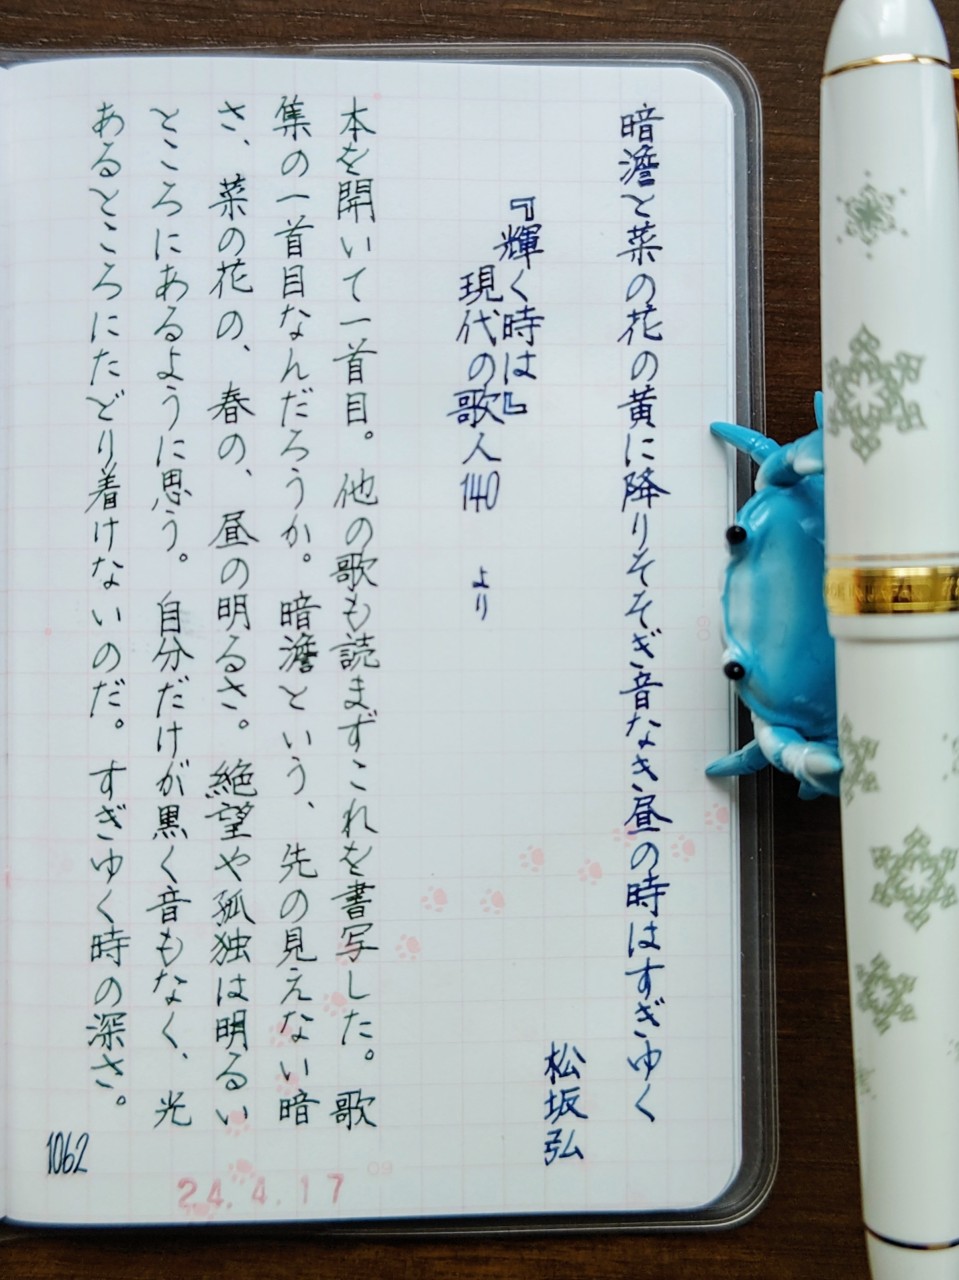 暗澹と菜の花の黄に降りそそぎ音なき昼の時はすぎゆく
松坂弘
『輝く時は』
現代の歌人140 より
本を開いて一首目。他の歌も読まずこれを書写した。歌
集の一首目なんだろうか。暗澹という、先の見えない暗
さ、菜の花の、春の、昼の明るさ。絶望や孤独は明るい
ところにあるように思う。自分だけが黒く音もなく、光
あるところにたどり着けないのだ。すぎゆく時の深さ。
1062
24.4.17
09